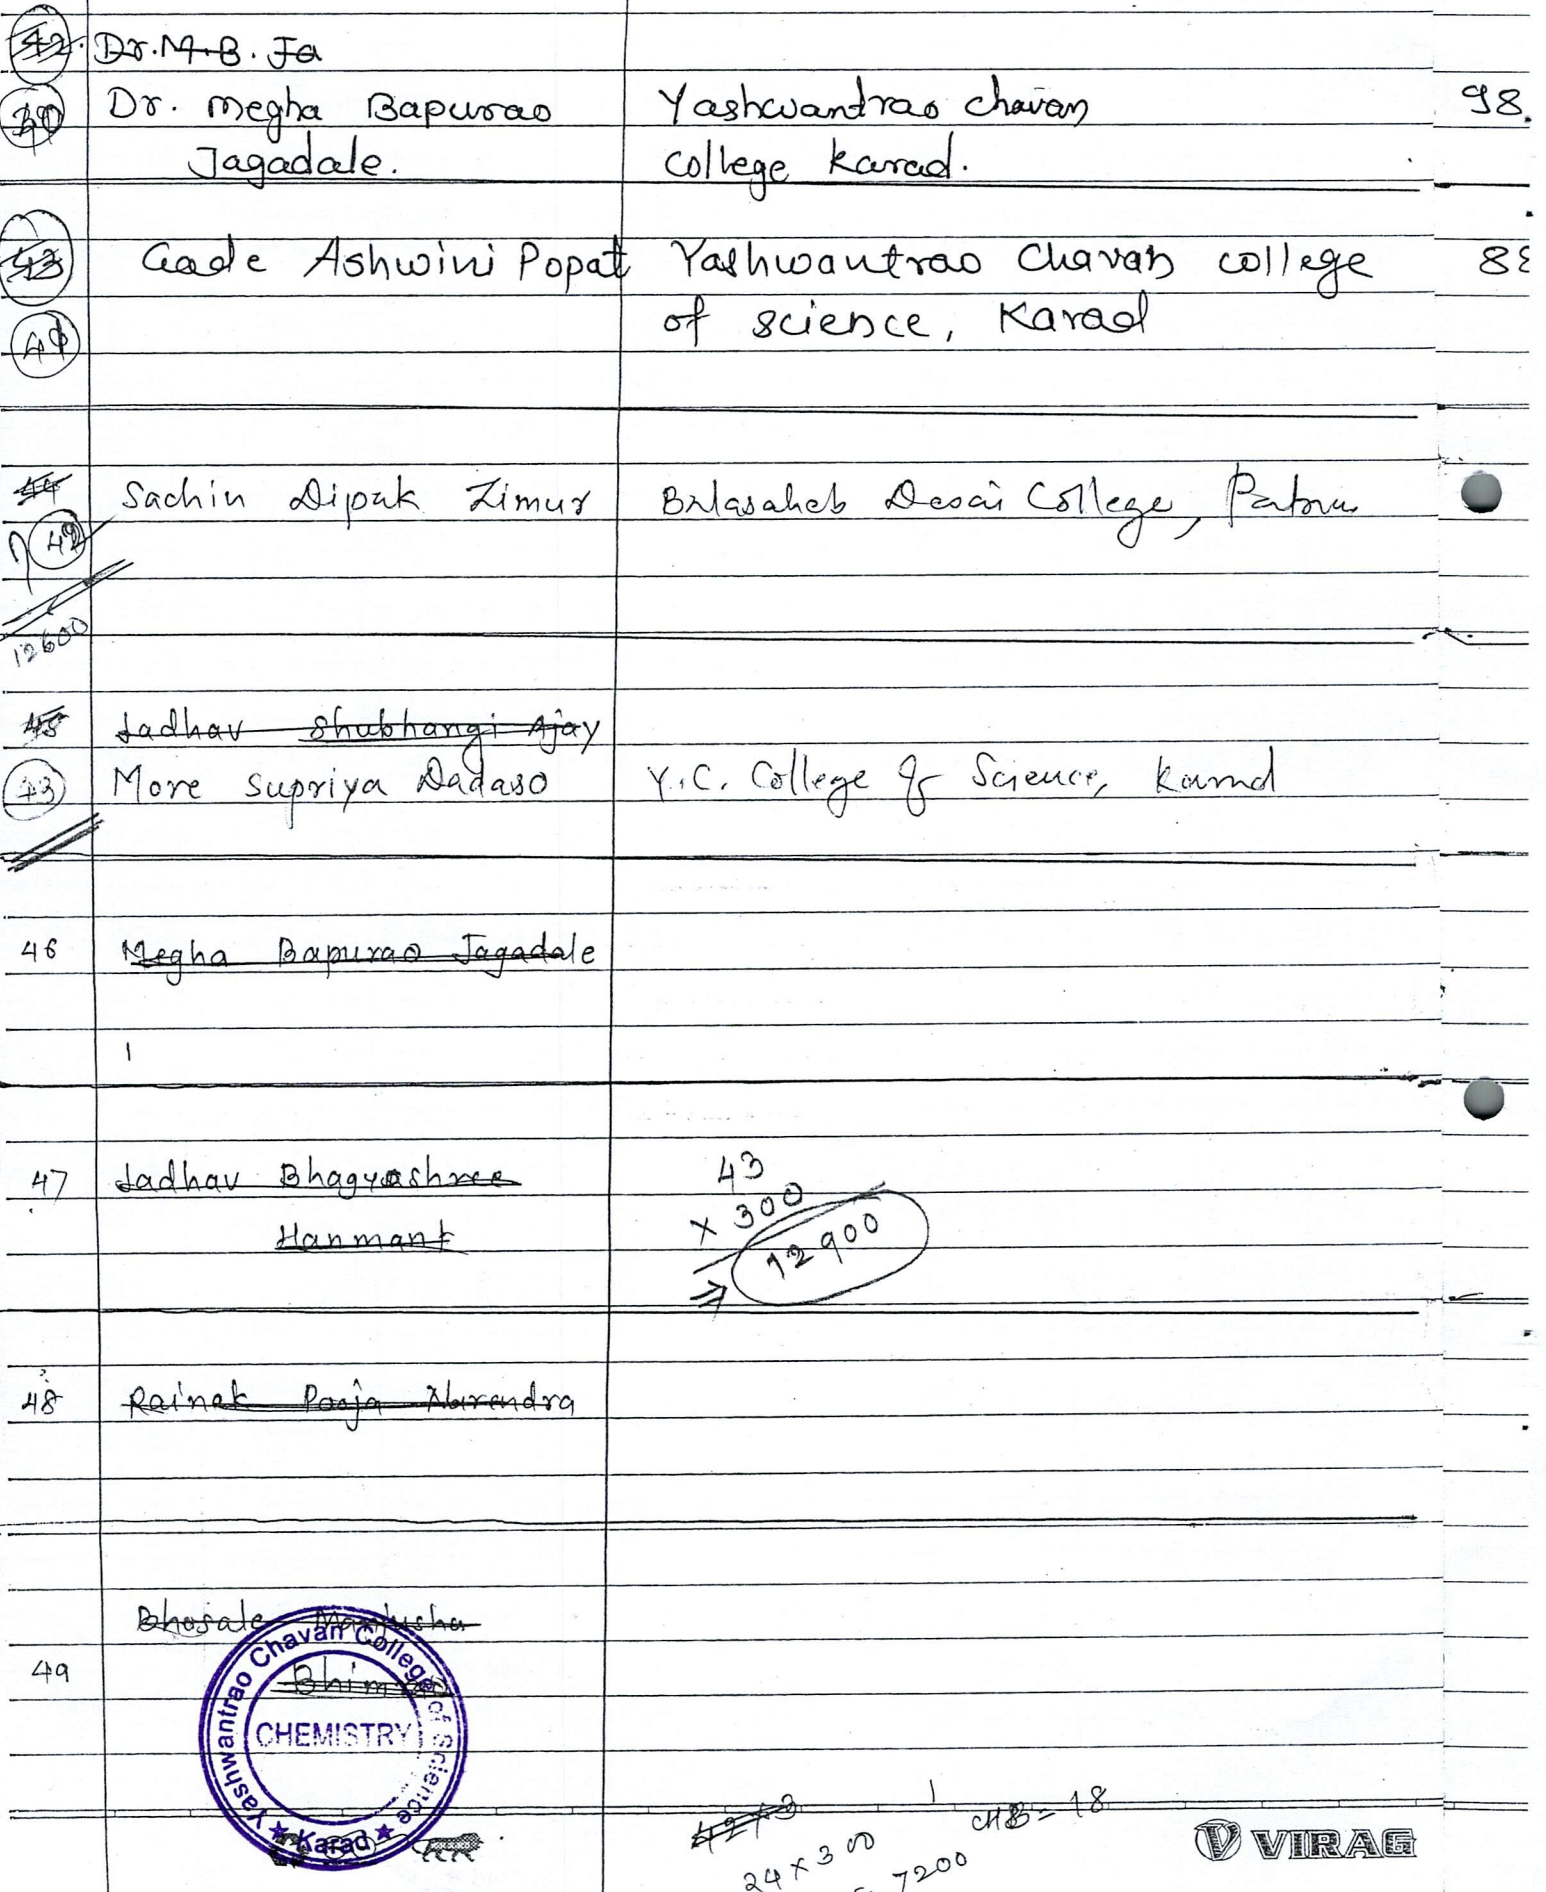 42. Dr. M. B. Ja
Dr. Megha Bapurao Yashwantrao Chavan 98
Jagadale. College Karad.
43 Gade Ashwini Popat Yashwantrao Chavan college 88
41 of science, Karad
44 Sachin Dipak Zimur Balasaheb Desai College, Patan
42
12600
45 Jadhav Shubhangi Ajay
43 More Supriya Dadaso Y.C. College of Science, Karad
46 Megha Bapurao Jagadale
47 Jadhav Bhagyashree 43
Hanmant × 300
⇒ 12900
48 Rainak Pooja Narendra
Bhosale Manjusha
49 Bhimrao
Yashwantrao Chavan College of Science
CHEMISTRY
★ Karad ★
CHB = 18
24 × 300
7200
VIRAG